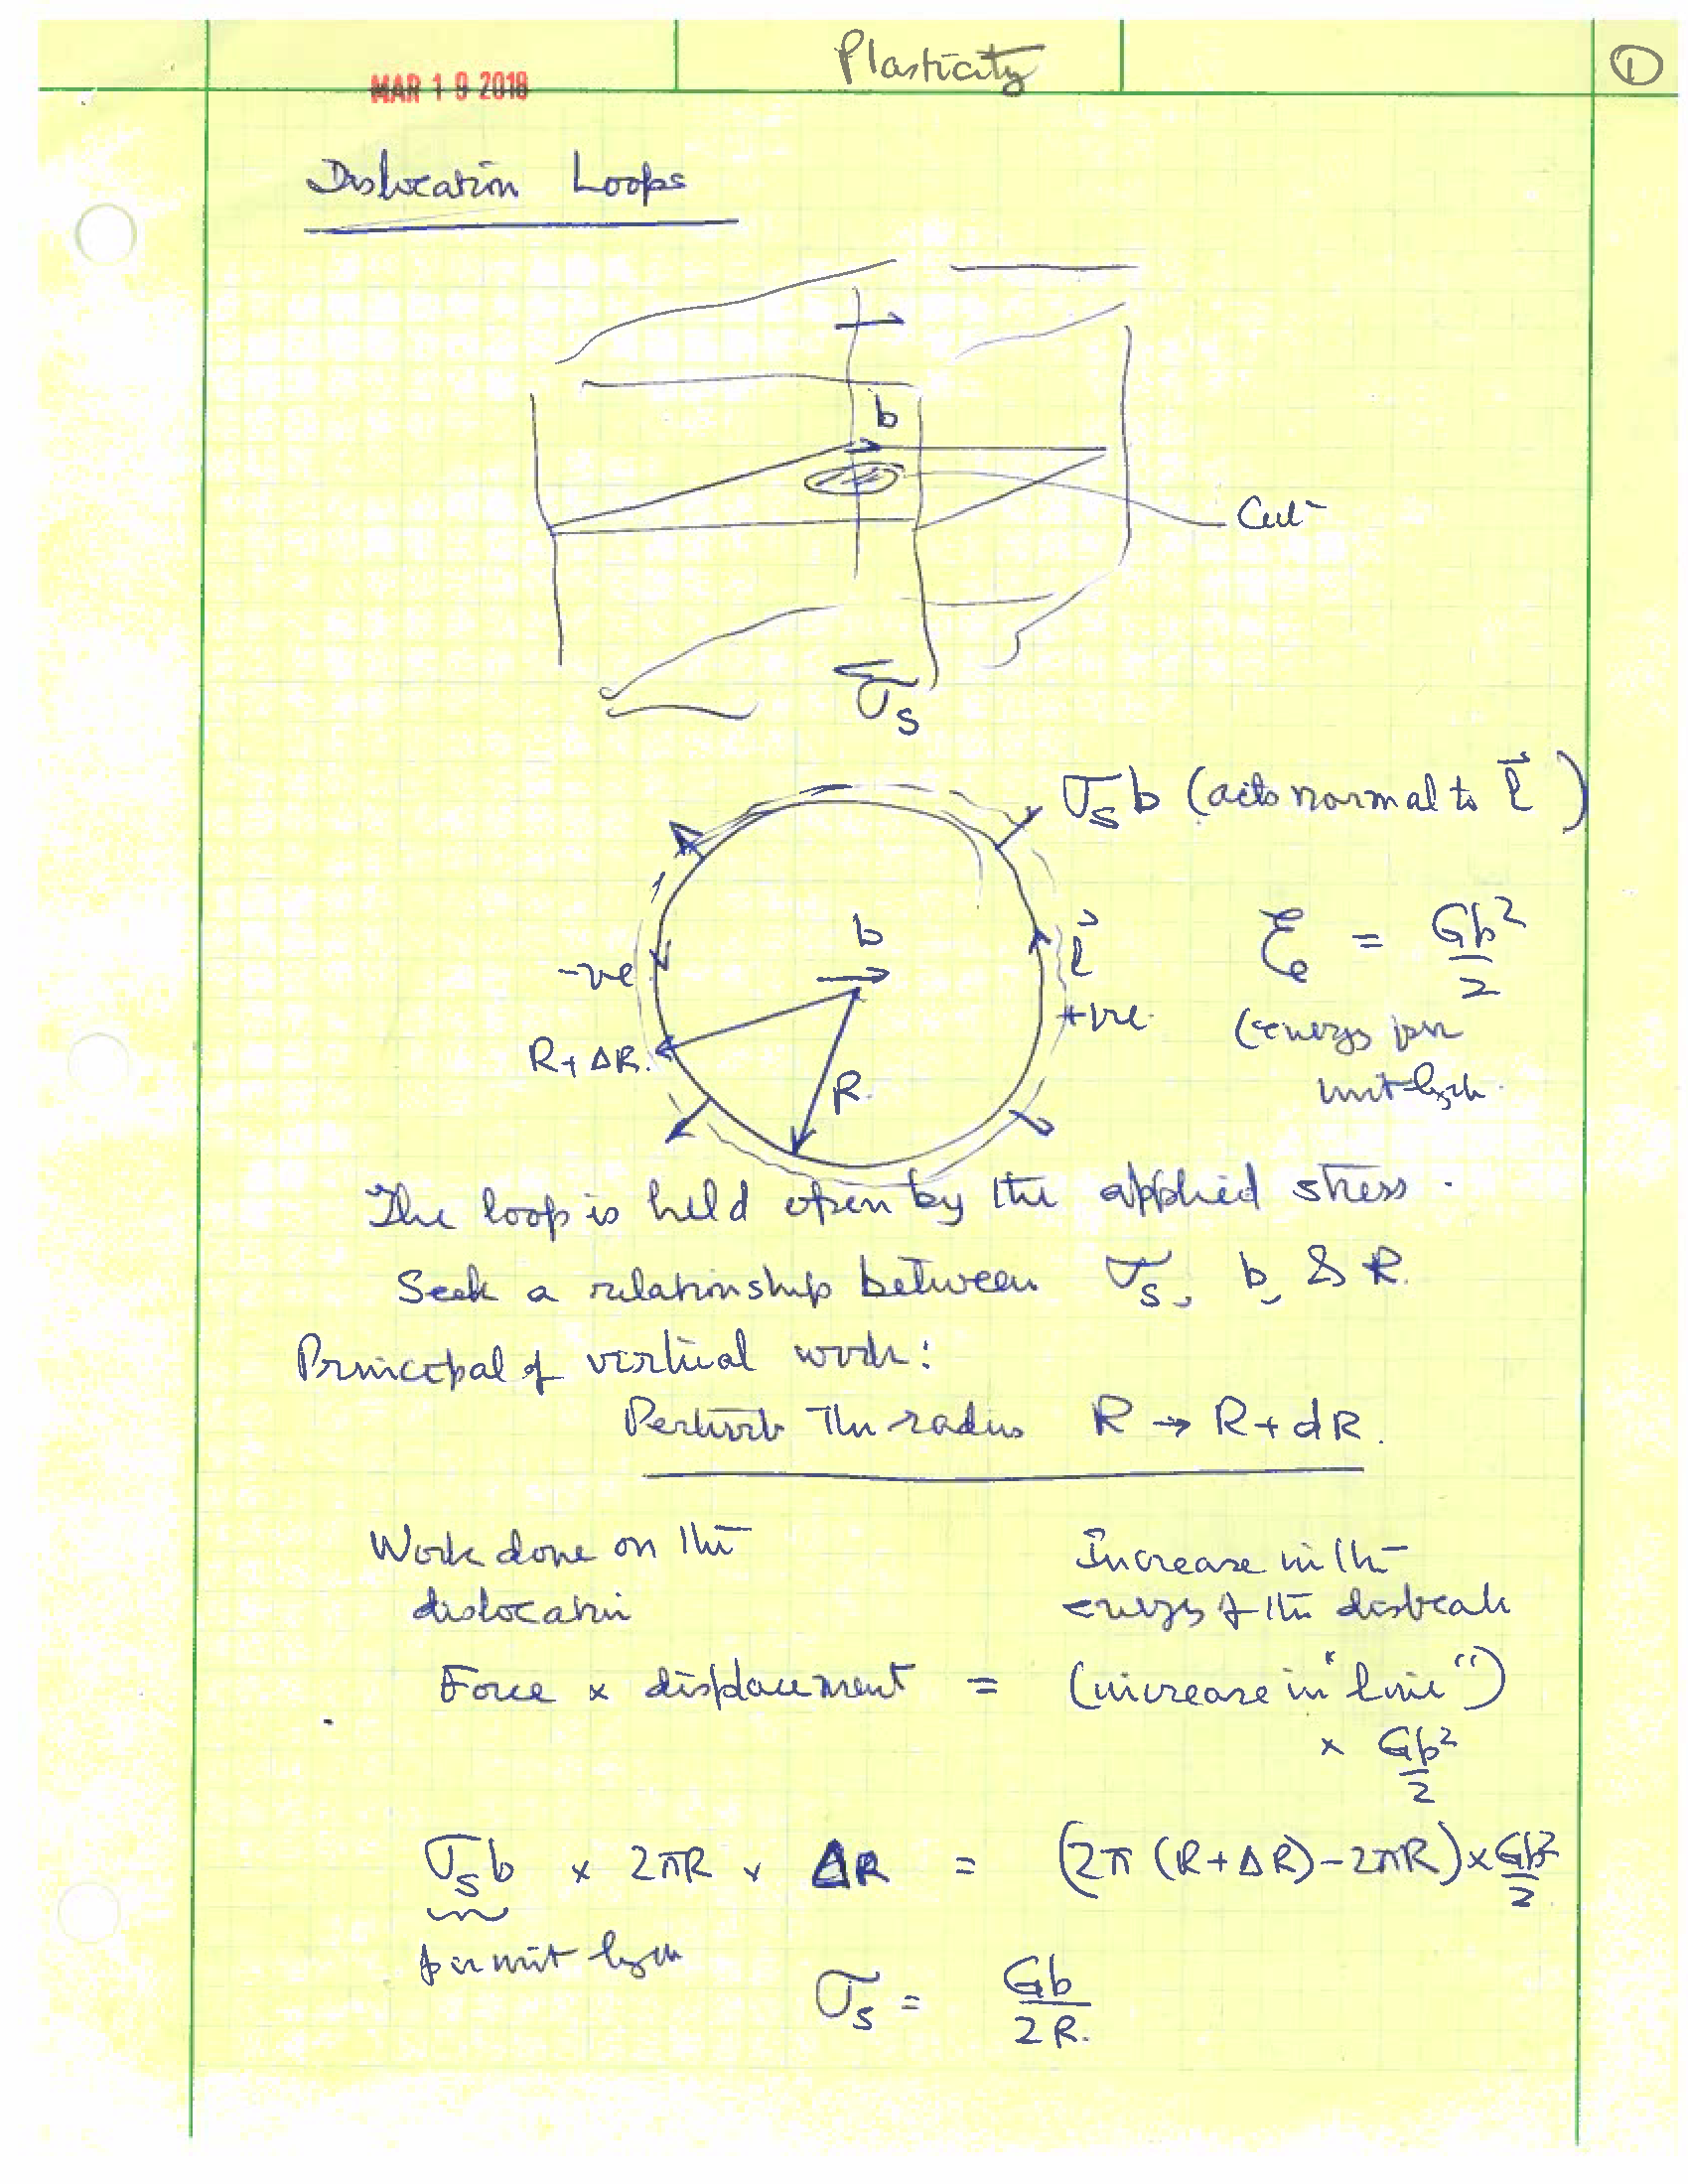 Plasticity
①
MAR 19 2018
Dislocation Loops
b
Cut
σs
σs b (acts normal to l⃗)
b
-ve
l⃗
+ve
ξe = Gb²/2
(energy per
unit length
R+ΔR.
R.
The loop is held open by the applied stress.
Seek a relationship between σs, b, & R.
Principal of virtual work:
Perturb the radius R → R+dR.
Work done on the
dislocation
Increase in the
energy of the
Force × displacement = (increase in "line")
× Gb²/2
σs b × 2πR × ΔR = (2π(R+ΔR)-2πR)×Gb²/2
per unit length
σs = Gb/2R.